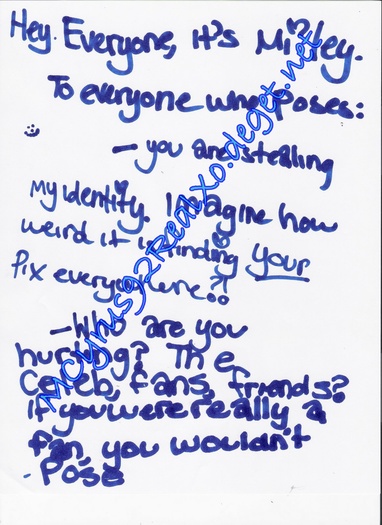 Hey. Everyone, it's Miley.
To everyone who poses:
- you are stealing
My identity. Imagine how
weird it is finding your
Pix everywhere??
- Who are you
hurting? The
Celeb, fans, friends?
If you were really a
fan, you wouldn't
- Pose
mcyrus92RealXo.deget.net